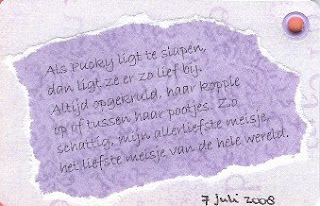 Als Pucky ligt te slapen,
dan ligt ze er zo lief bij.
Altijd opgekruld, haar koppie
op of tussen haar pootjes. Zo
schattig, mijn allerliefste meisje,
het liefste meisje van de hele wereld.
7 juli 2008